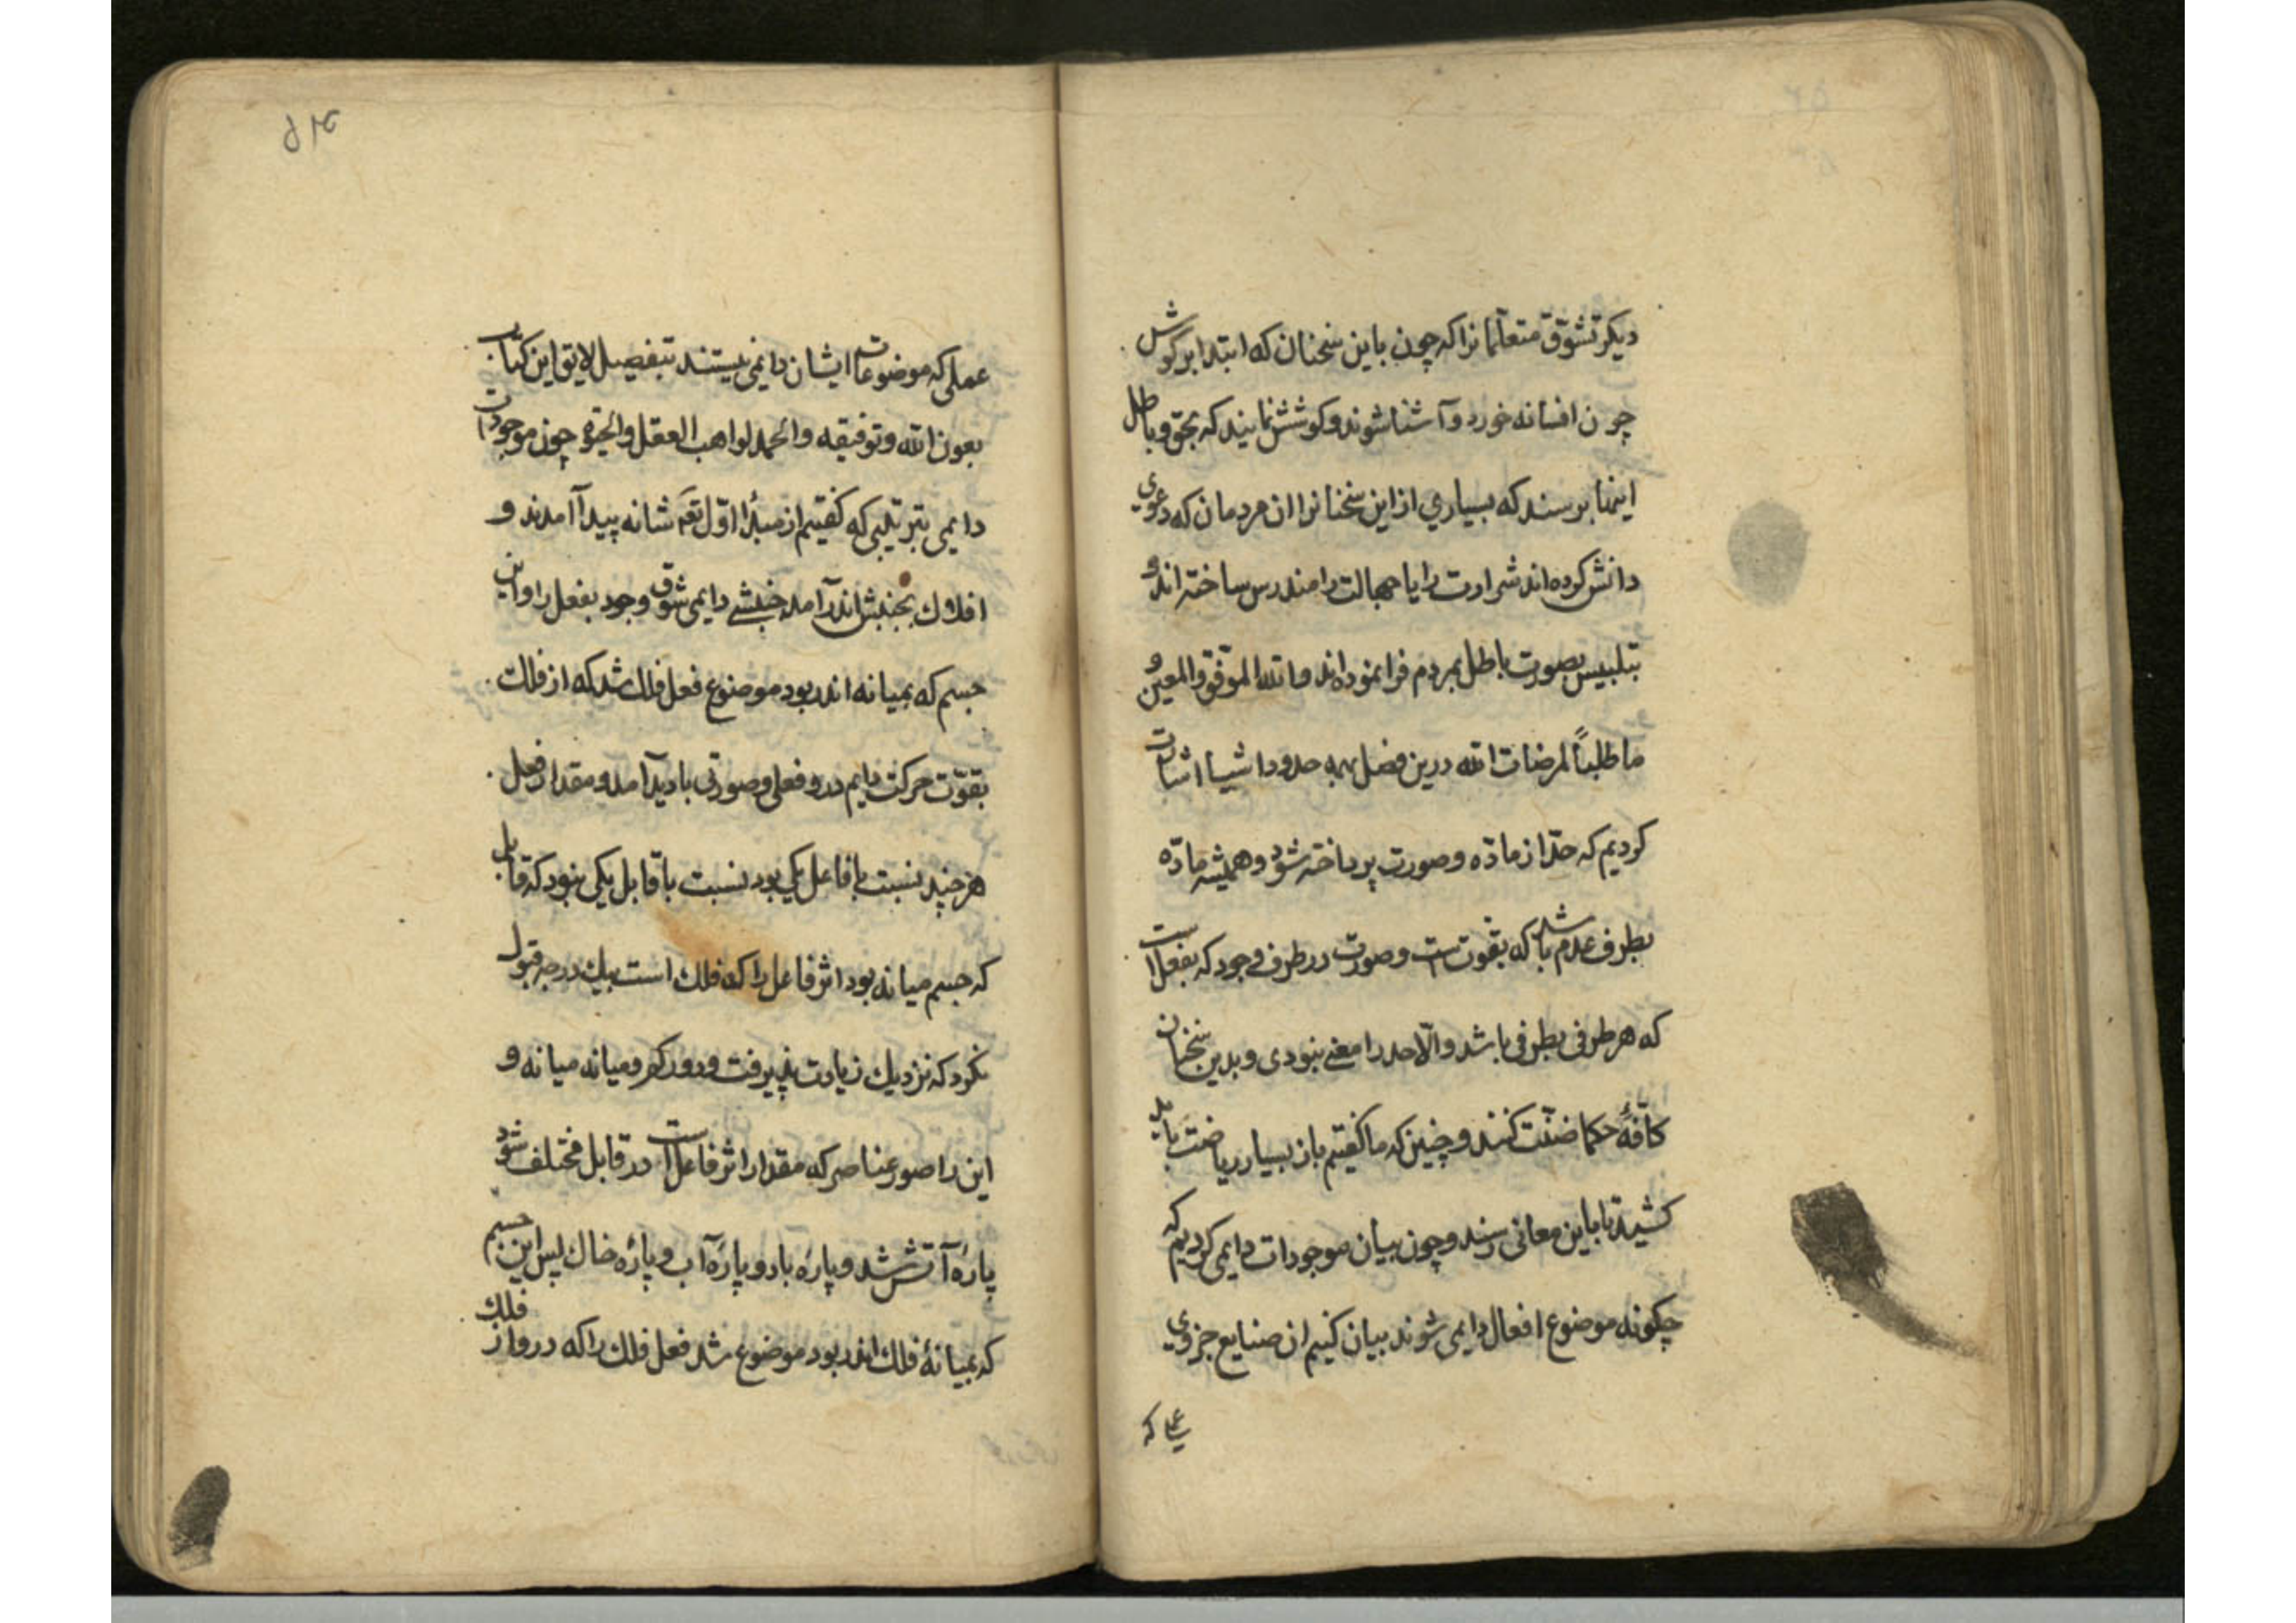 دیکر تشوّق متعلّمانرا که چون باین سخنان که ابتدا بر کوش
چون افسانه خورد و آشنا شوند و کوشش نمایند که بحق و باطل
اینها برسند که بسیاری از این سخنانرا ان مردمان که دعوی
دانش کرده‌اند شرارت را یا جهالت را مندرس ساخته‌اند و
بتلبیس بصورت باطل بمردم فرا نموده‌اند والله الموفق والمعین و
ما طلبنا لمرضات الله درین فصل همه حدود اشیا اثبات
کردیم که حدّ از مادّه و صورت پرداخته شود و همیشه مادّه
بطرف عدم باشد که بقوت است و صورت در طرف وجود که بفعل است
که هر طرفی بطرفی باشد والّا حد را معنی نبودی و بدین سخنان
کافّهٔ حکما ضنّت کنند و چنین که ما کفتیم باز بسیار ریاضت باید
کشید تا باین معانی رسند و چون بیان موجودات دایمی کردیم که
چکونه موضوع افعال دایمی شوند بیان کنیم ان صنایع جزوی
عملی که
عملی که موضوعات ایشان دایمی نیستند بتفصیل لایق این کتاب
بعون الله وتوفیقه والحمد لواهب العقل والحیوة چون موجودات
دایمی بترتیبی که کفتیم از مبدأ اوّل تعم شانه پیدا آمدند و
افلاک بجنبش اندر آمد جنبشی دایمی شوق وجود بفعل را و این
جسم که بمیانه اندر بود موضوع فعل فلک شد که از فلک
بقوّت حرکت دایم درو فعلی و صورتی بادید آمد و مقدار فعل
هر چند نسبت با فاعل یکی بود نسبت با قابل یکی نبود که قابل
که جسم میانه بود اثر فاعل را که فلک است بیک درجه قبول
نکرد که نزدیک زیادت پذیرفت و دور کم و میانه میانه و
این را صور عناصر که مقدار اثر فاعل است در قابل مختلف شود
پارهٔ آتش شد و پارهٔ باد و پارهٔ آب و پارهٔ خاک پس این جسم
که بمیانهٔ فلک اندر بود موضوع شد فعل فلک را که درو از فلک